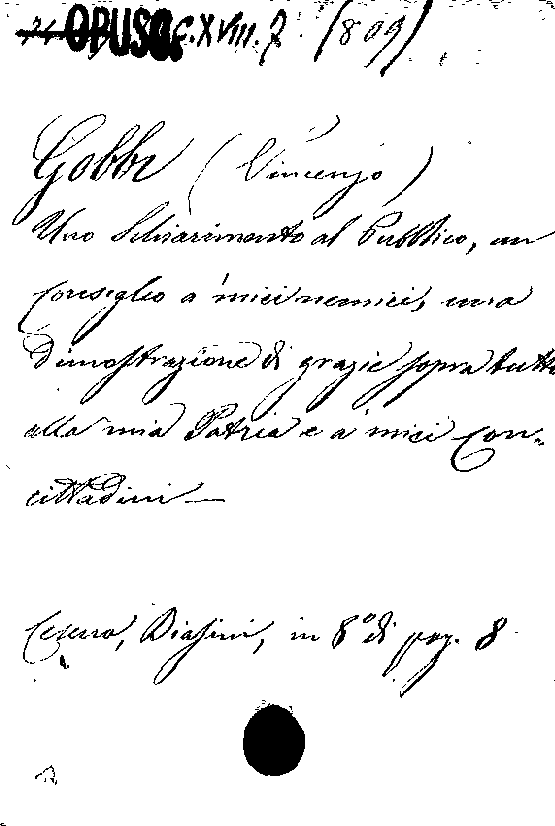 OPUSC. C.XVIII.7 (809)
Gobbi (Vincenzo)
Uno Schiarimento al Pubblico, un
consiglio a' miei nemici, una
dimostrazione di grazie sopra tutto
alla mia Patria e a' miei con-
cittadini —
Cesena, Biasini, in 8° di pag. 8